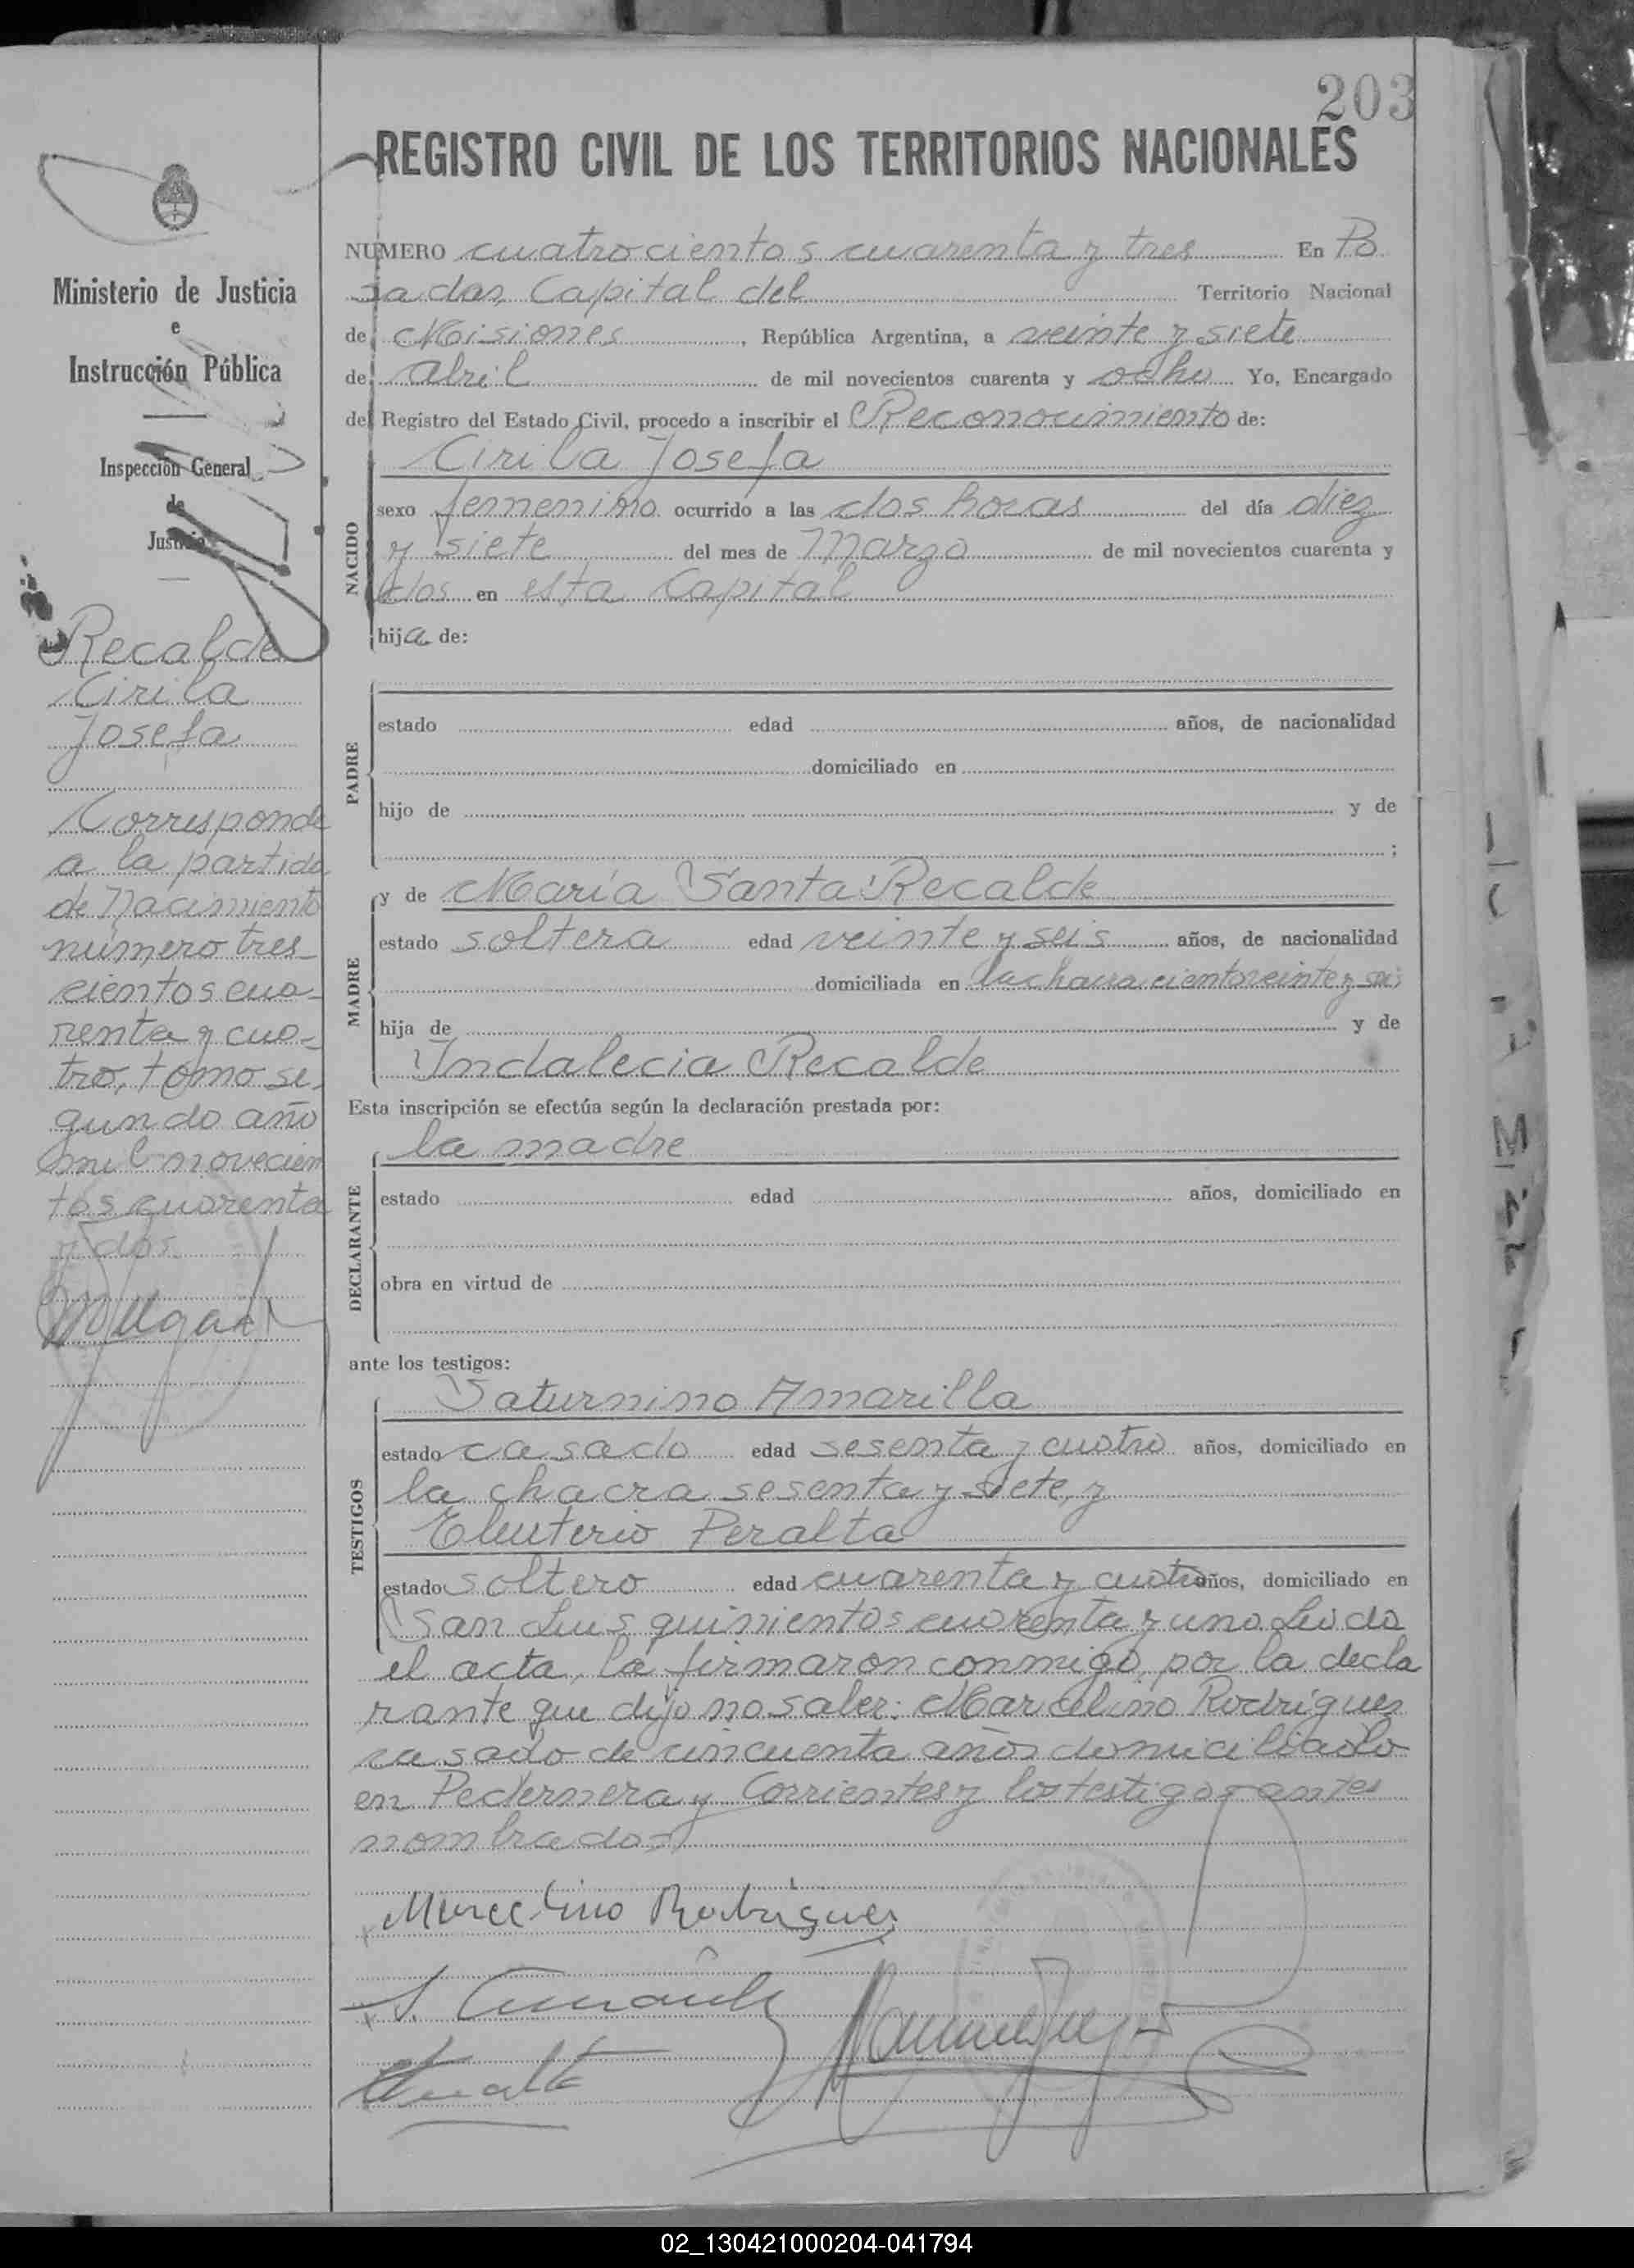 203
REGISTRO CIVIL DE LOS TERRITORIOS NACIONALES
Ministerio de Justicia
e
Instrucción Pública
Inspección General
de
Justicia
Recalde
Cirila
Josefa
Corresponde
a la partida
de Nacimiento
número tres
cientos cua-
renta y cua-
tro, tomo se
gundo año
mil novecien
tos cuarenta
y dos
NUMERO cuatrocientos cuarenta y tres En Po
sadas, Capital del Territorio Nacional
de Misiones, República Argentina, a veinte y siete
de Abril de mil novecientos cuarenta y ocho Yo, Encargado
del Registro del Estado Civil, procedo a inscribir el Reconocimiento de:
NACIDO
Cirila Josefa
sexo femenino ocurrido a las dos horas del día diez
y siete del mes de Marzo de mil novecientos cuarenta y
dos en esta Capital
hija de:
PADRE
estado edad años, de nacionalidad
domiciliado en
hijo de y de
;
MADRE
y de María Santa Recalde
estado soltera edad veinte y seis años, de nacionalidad
domiciliada en la chacra ciento veinte y seis
hija de y de
Indalecia Recalde
Esta inscripción se efectúa según la declaración prestada por:
DECLARANTE
la madre
estado edad años, domiciliado en
obra en virtud de
ante los testigos:
TESTIGOS
Saturnino Amarilla
estado casado edad sesenta y cuatro años, domiciliado en
la chacra sesenta y siete, y
Eleuterio Peralta
estado soltero edad cuarenta y cuatro años, domiciliado en
San Luis quinientos cuarenta y uno. Leída
el acta, la firmaron conmigo, por la decla
rante que dijo no saber: Marcelino Rodrigues
casado de cincuenta años domiciliado
en Pedernera y Corrientes y los testigos antes
nombrados
Marcelino Rodrigues
02_130421000204-041794